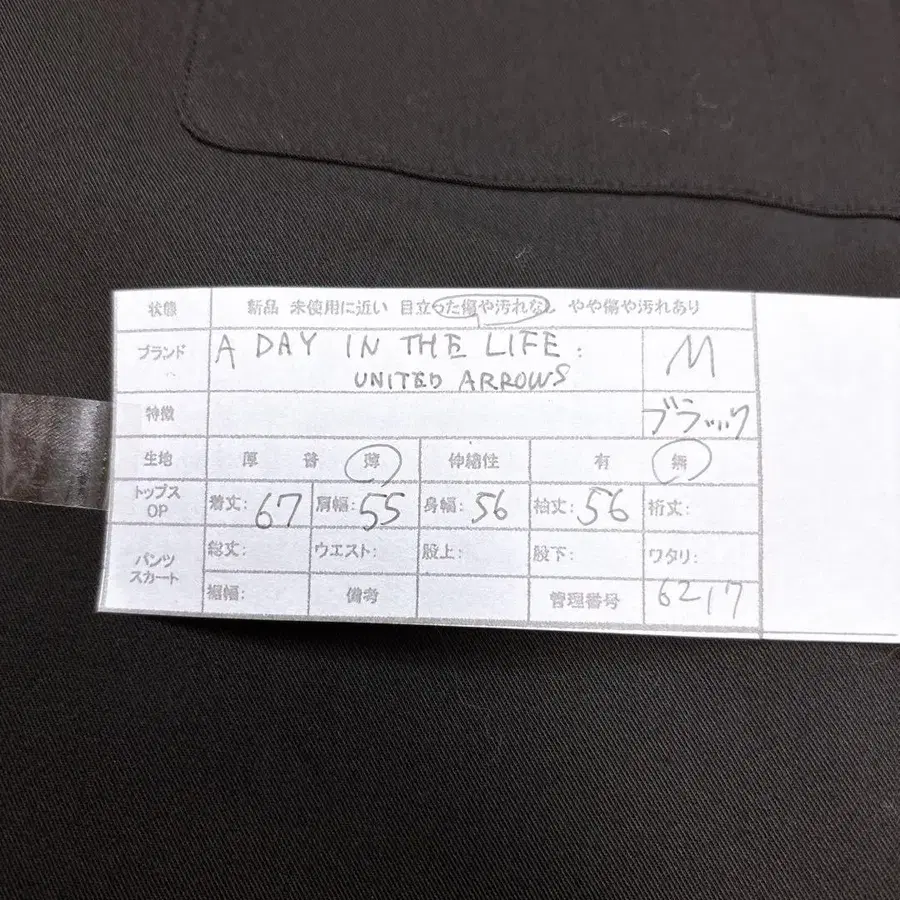 状態 新品 未使用に近い 目立った傷や汚れなし やや傷や汚れあり
ブランド A DAY IN THE LIFE: M
UNITED ARROWS
特徴 ブラック
生地 厚 普 薄 伸縮性 有 無
トップス OP 着丈: 67 肩幅: 55 身幅: 56 袖丈: 56 裄丈:
パンツ スカート 総丈: ウエスト: 股上: 股下: ワタリ:
裾幅: 備考 管理番号 6217